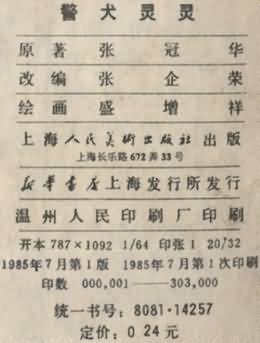 警犬灵灵
原著 张冠华
改编 张企荣
绘画 盛增祥
上海人民美術出版社出版
上海长乐路672弄33号
新华書店上海发行所发行
温州人民印刷厂印刷
开本 787×1092 1/64 印张 1 20/32
1985年7月第1版 1985年7月第1次印刷
印数 000,001——303,000
统一书号: 8081·14257
定价: 0 24元